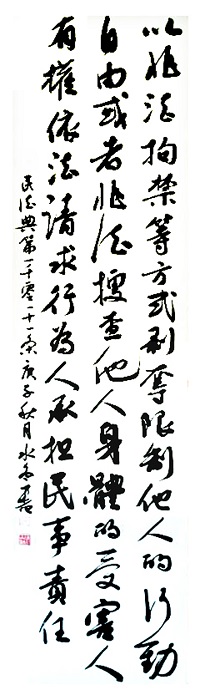 以非法拘禁等方式剥夺限制他人的行動
自由或者非法搜查他人身體的受害人
有權依法請求行为人承担民事責任
民法典第一千零一十一條庚子秋月水兔書